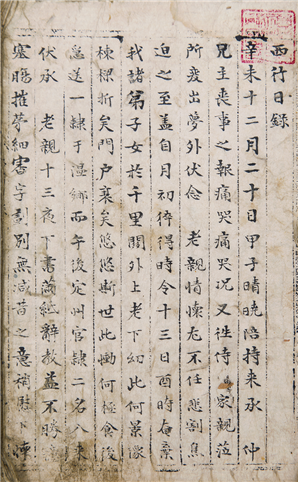 西行日錄
辛未十二月二十日甲子晴曉陪持來承 仲
兄主喪事之報痛哭痛哭況又往侍 家親莅
所處出夢外伏念 老親情懷尤不任悲割焦
迫之至蓋自月初待得時令十三日酉時奄棄
我諸弟子女於千里關外上老下幼此何景像
棟樑折矣門戶衰矣悠悠斯世此慟何極食後
急送一隸于溫鄉而午後定州官隸二名入來
伏承 老親十三夜下書滿紙辭教益不勝
塞腸摧夢細害字劃別無減昔之意稍慰下懷